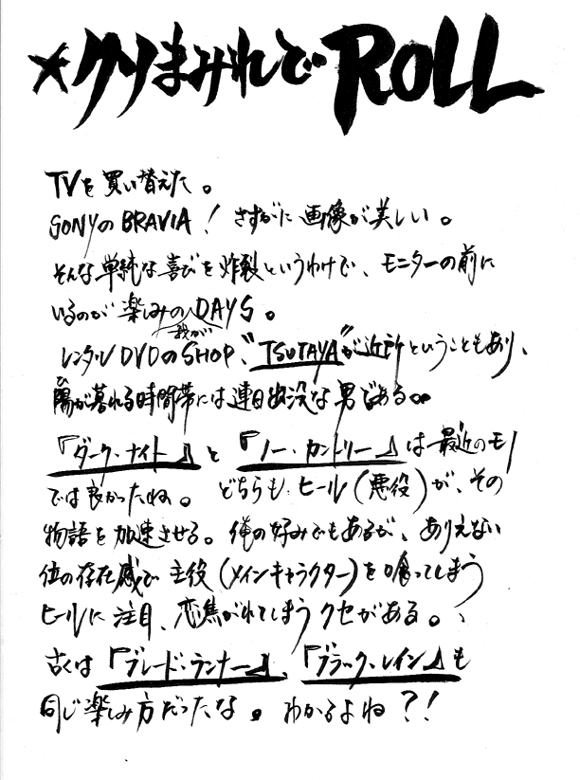 ★クソまみれで ROLL
TVを買い替えた。
SONYのBRAVIA! さすがに画像が美しい。
そんな単純な喜びを炸裂というわけで、モニターの前に
いるのが楽しみのDAYS。
我が
レンタルDVDのSHOP、"TSUTAYA"が近所ということもあり、
陽が暮れる時間帯には連日出没な男である∞
ひ
『ダーク・ナイト』と『ノー・カントリー』は最近のモノ
では良かったね。 どちらもヒール(悪役)が、その
物語を加速させる。俺の好みでもあるが、ありえない
位の存在感で主役(メインキャラクター)を喰ってしまう
ヒールに注目、恋焦がれてしまうクセがある。
古くは『ブレード・ランナー』、『ブラック・レイン』も
同じ楽しみ方だったな。わかるよね?!